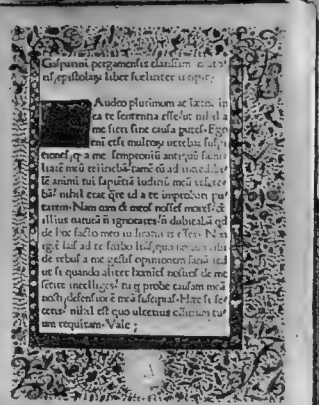 Gasparini pergamensis clarissimi orato-
ris, epistolarũ liber foeliciter incipit;
Audeo plurimum ac lætor in
ea te sententia esse. ut nihil a
me fieri sine causa putes. Ego
eni etsi multorũ uerebar suspi
tiones, q a me semproniũ antiquũ fami
liarẽ meũ reiiciebã. tamẽ cũ ad
tẽ animi tui sapientiã iudiciũ meũ refere
bã. nihil erat qre id a te improbari pu
tarem. Nam cum & meos nosses mores. &
illius naturã ñ ignorares. ñ dubitabã qd
de hoc facto meo iudicaturus esses. Non
igit has ad te scribo lras, quo
de rebus a me gestis opinionem faciã. sed
ut si quando aliter homines nostros de me
sentire intelliges. tu q probe causam meã
nosti, defensionẽ meã suscipias. Hæc si fe
ceris. nihil est quo ulterius officium tu
um requiram. Vale;